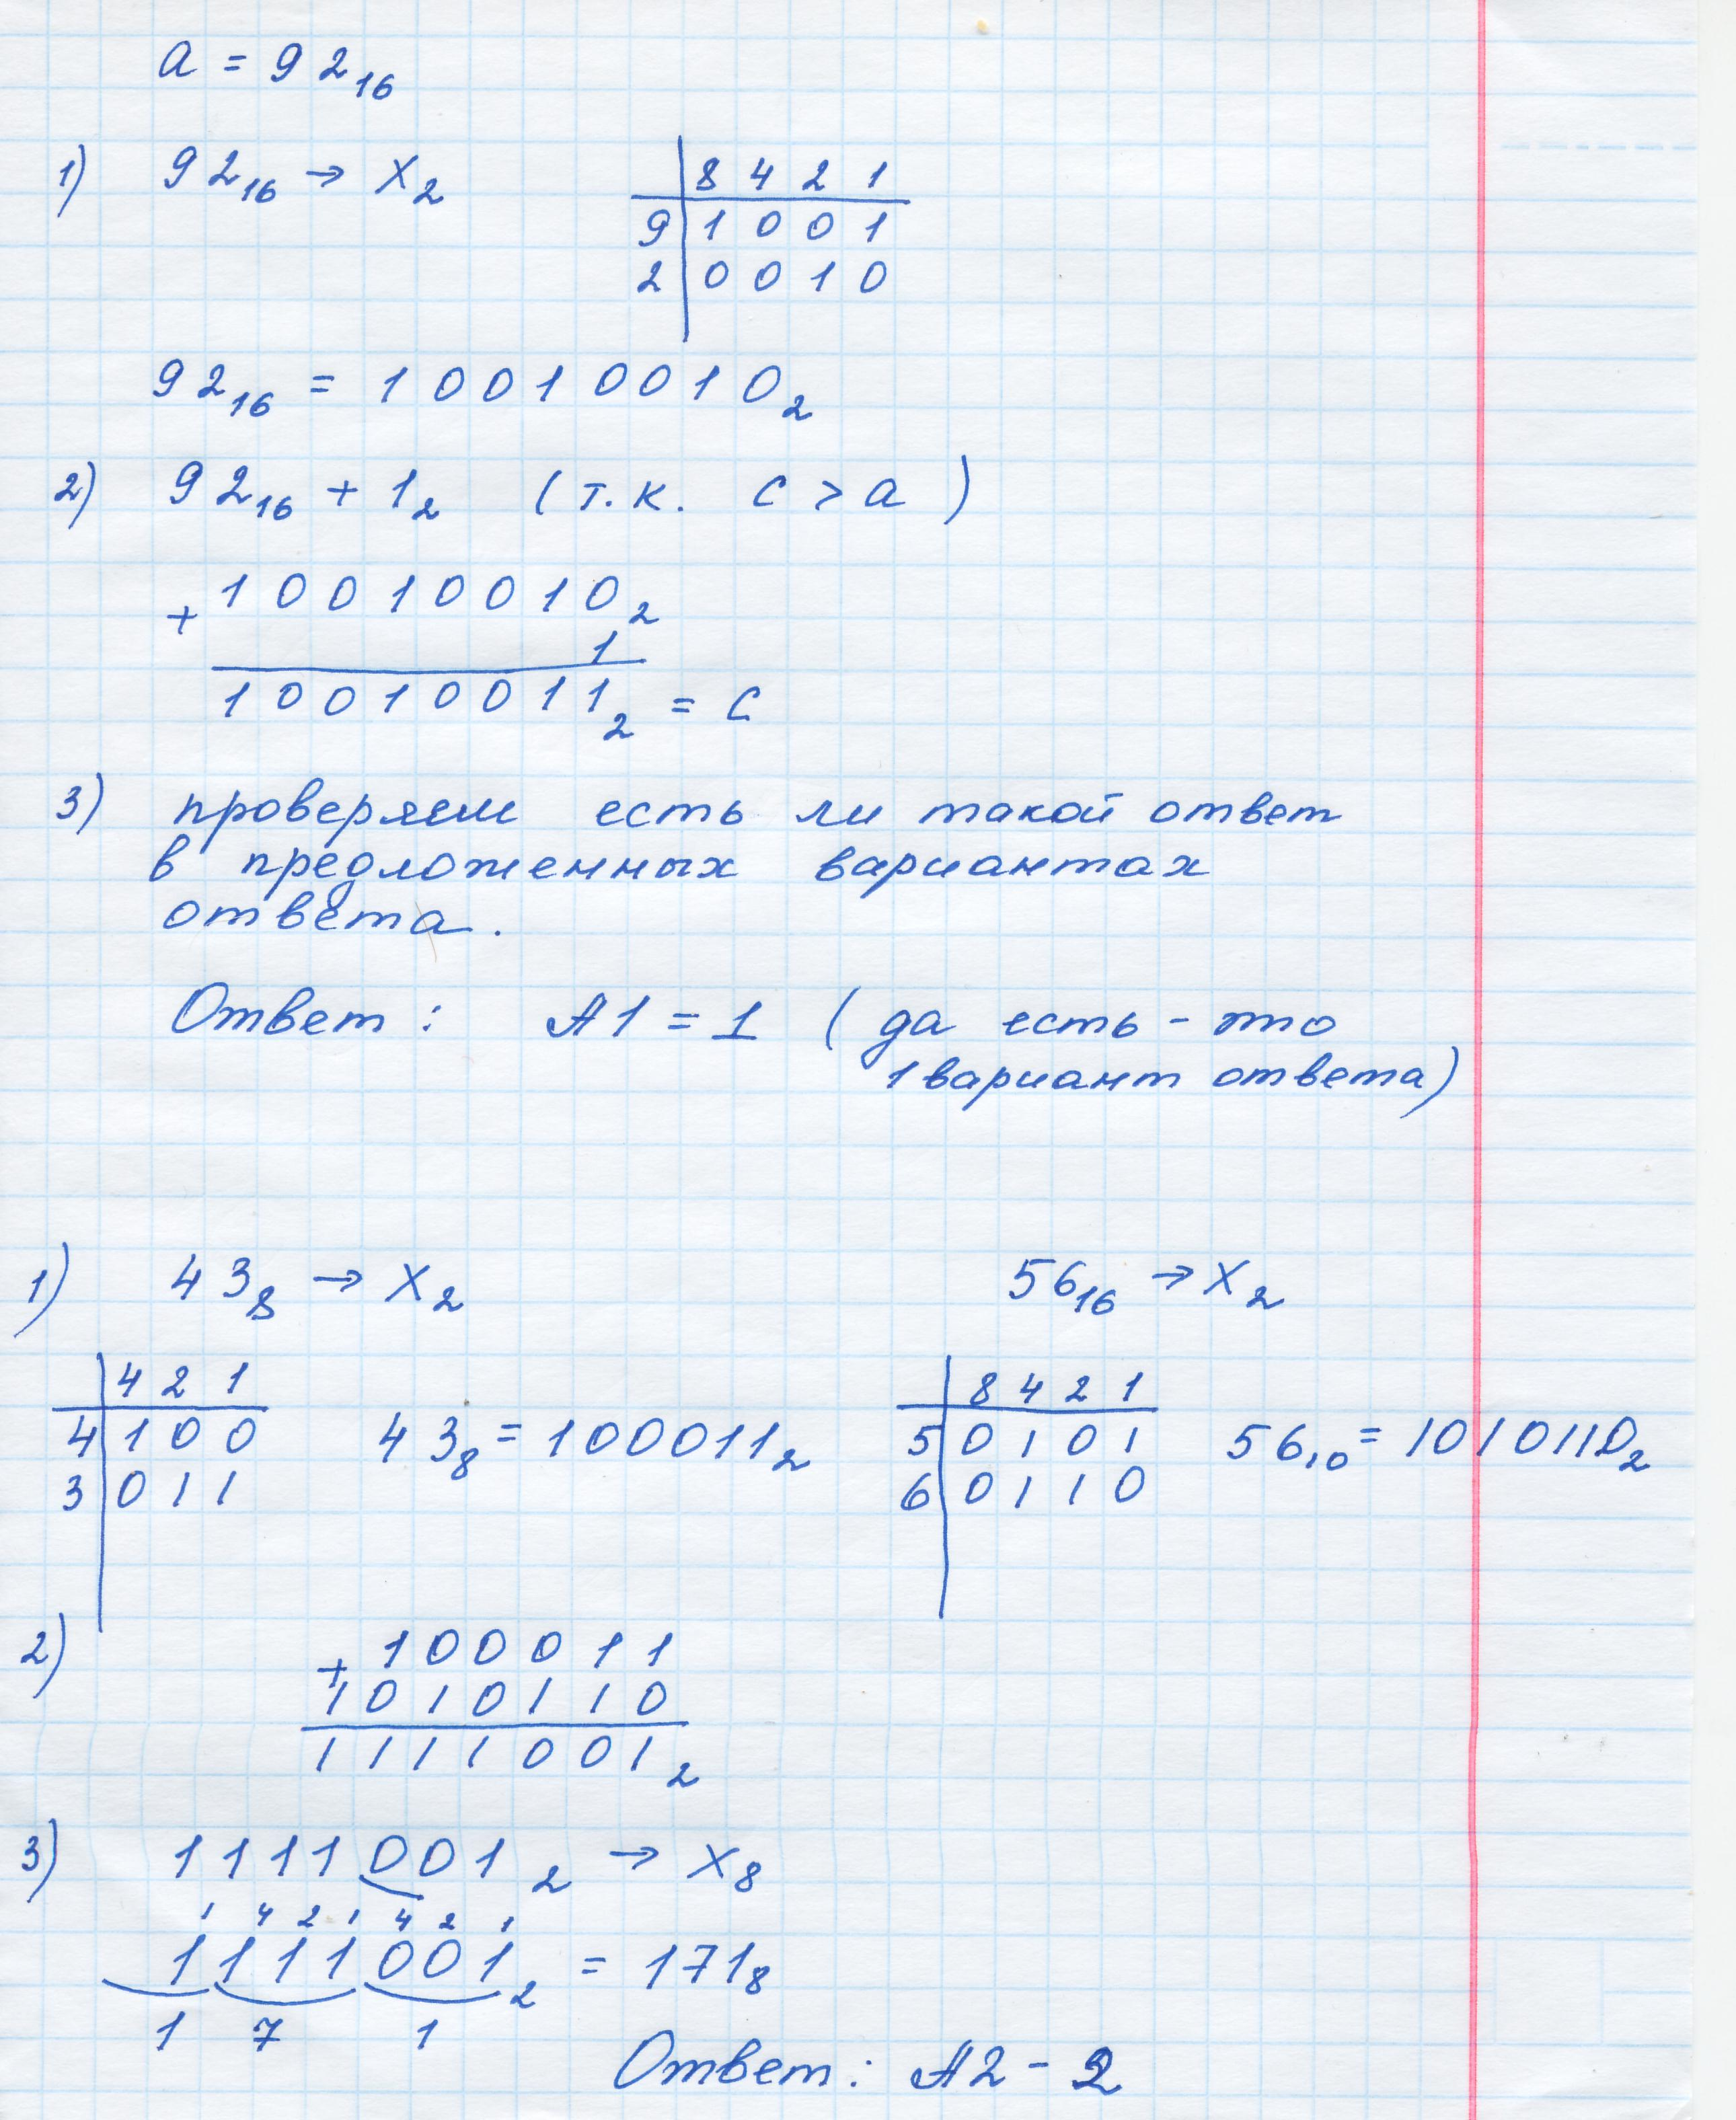 a = 92₁₆
1) 92₁₆ → X₂
8 4 2 1
9 1 0 0 1
2 0 0 1 0
92₁₆ = 10010010₂
2) 92₁₆ + 1₂ (т.к. c > a)
+ 10010010₂
1
10010011₂ = c
3) проверяем есть ли такой ответ
в предложенных вариантах
ответа.
Ответ: А1 = 1 (да есть - это
1 вариант ответа)
1) 43₈ → X₂ 56₁₆ → X₂
4 2 1
4 1 0 0
3 0 1 1
43₈ = 100011₂
8 4 2 1
5 0 1 0 1
6 0 1 1 0
56₁₀ = 1010110₂
2) + 100011
1010110
1111001₂
3) 1111001₂ → X₈
1 4 2 1 4 2 1
1111001₂ = 171₈
1 7 1
Ответ: А2 - 2